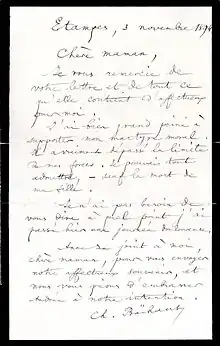 Etampes, 3 novembre 189
Chère maman,
Je vous remercie de
votre lettre et de tout ce
qu'elle contient d'affectueux
pour moi.
J'ai bien grand peine à
supporter mon martyre moral.
Il a vraiment dépassé la limite
de mes forces. Je pouvais tout
admettre, – sauf la mort de
ma fille.
Je n'ai pas besoin de
vous dire à quel point j'ai
passé hier une journée
se joint à moi,
chère maman, pour vous envoyer
notre affectueux souvenir, et
nous vous prions d'embrasser
à notre intention.
Ch. Baïhaut